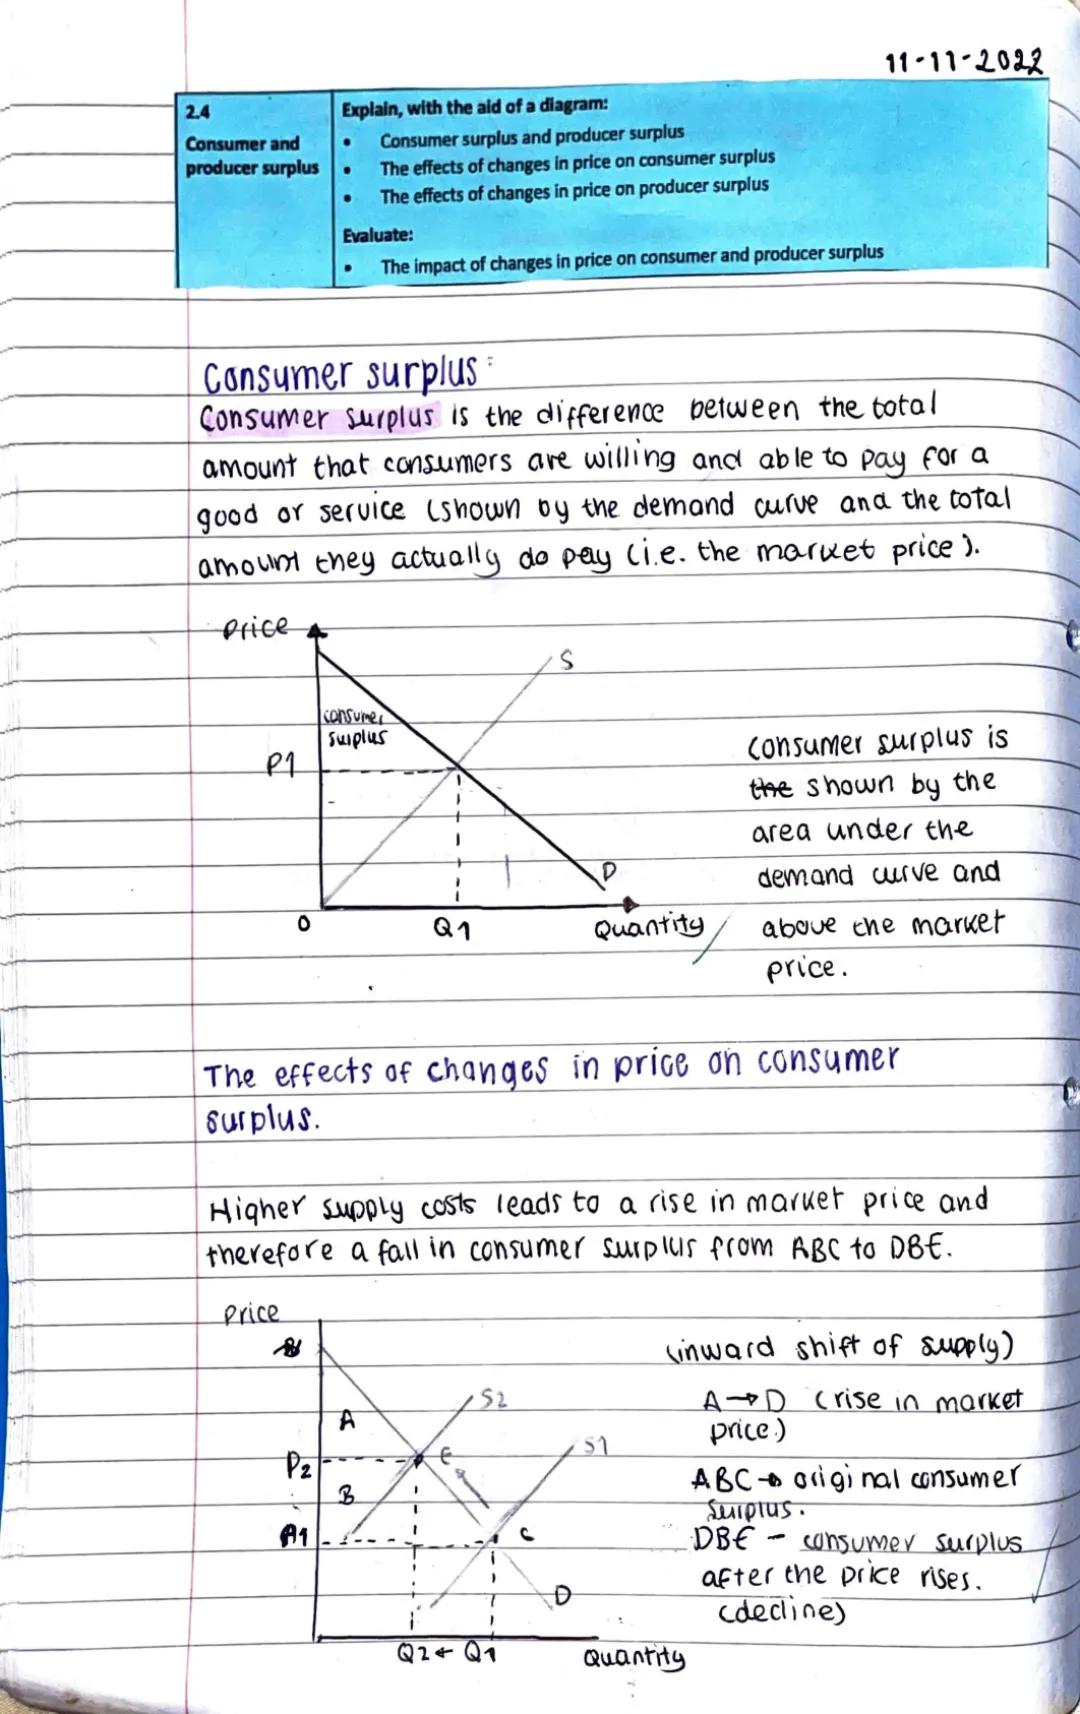 11-11-2022
2.4
Consumer and
producer surplus
Explain, with the aid of a diagram:
• Consumer surplus and producer surplus
• The effects of changes in price on consumer surplus
• The effects of changes in price on producer surplus
Evaluate:
• The impact of changes in price on consumer and producer surplus
Consumer surplus:
Consumer surplus is the difference between the total
amount that consumers are willing and able to pay for a
good or service (shown by the demand curve and the total
amount they actually do pay (i.e. the market price).
Price
S
consumer
surplus
P1
D
0
Q1
Quantity
consumer surplus is
the shown by the
area under the
demand curve and
above the market
price.
The effects of changes in price on consumer
surplus.
Higher supply costs leads to a rise in market price and
therefore a fall in consumer surplus from ABC to DBE.
Price
(inward shift of supply)
S2
A→D (rise in market
price.)
A
S1
P2
E
ABC→ original consumer
surplus.
B
C
DBE - consumer surplus
after the price rises.
(decline)
D
Q2 ← Q1
Quantity